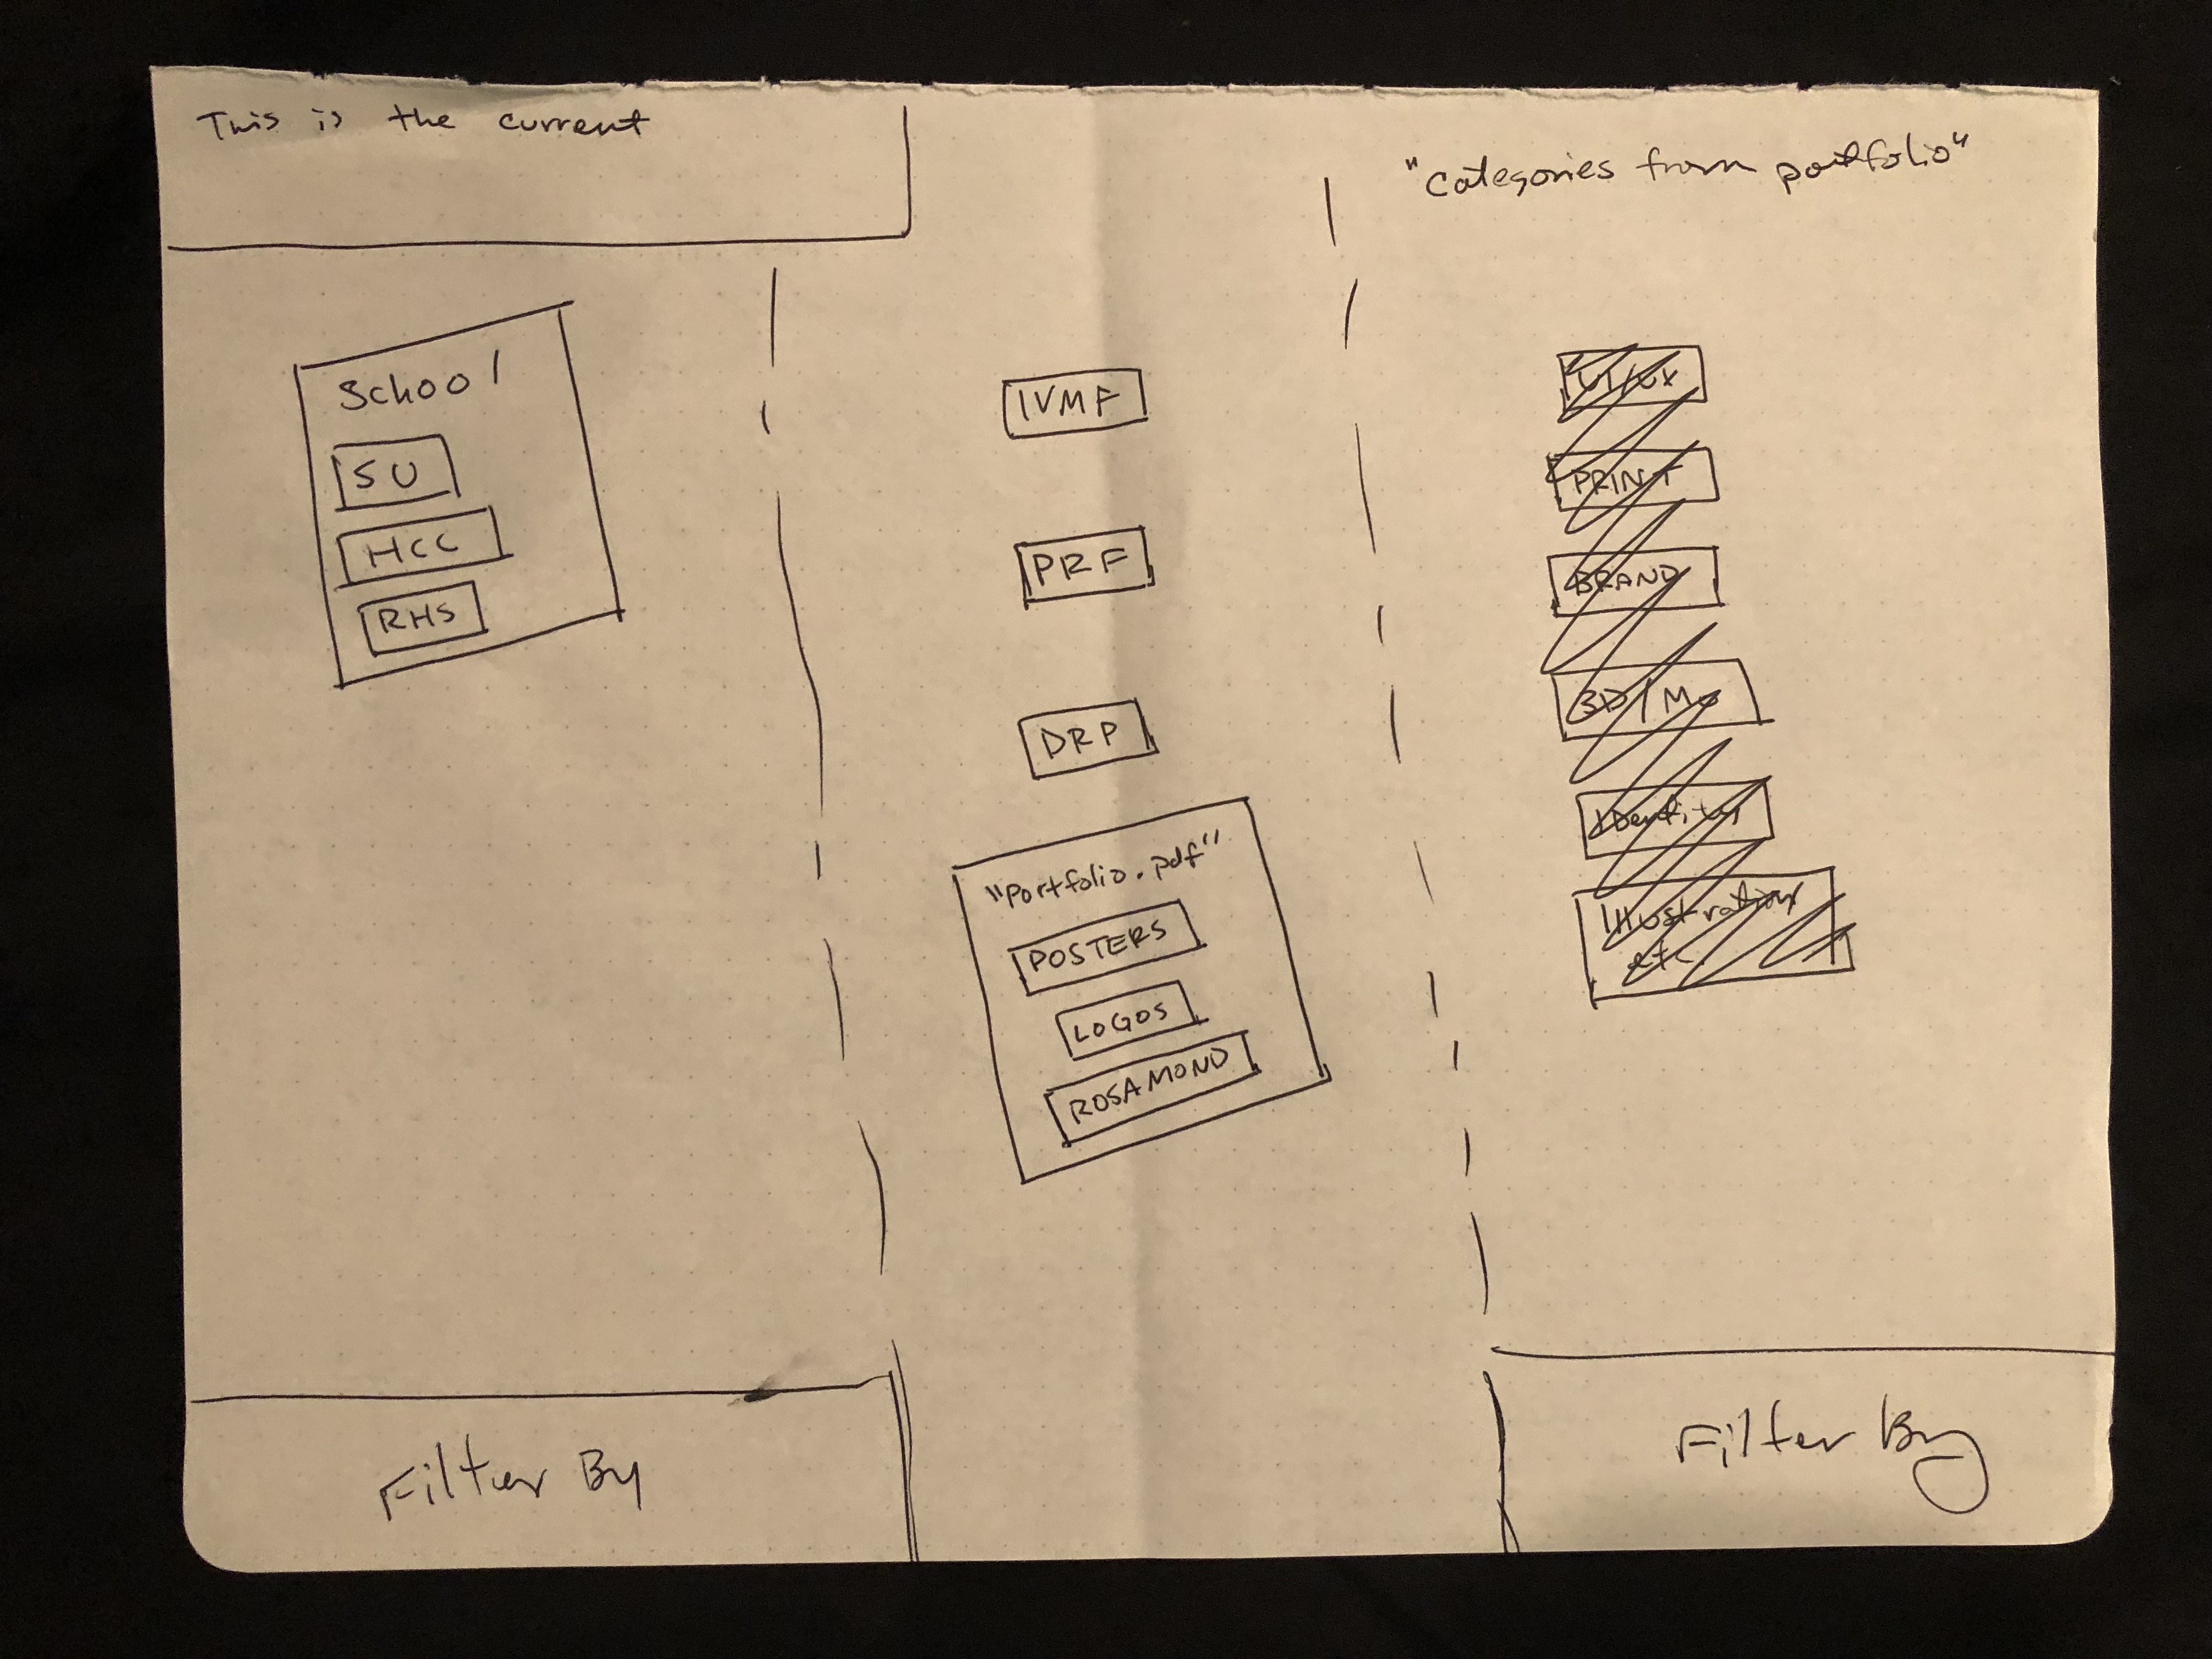 This is the current
School
SU
HCC
RHS
Filter By
IVMF
PRF
DRP
"portfolio.pdf"
POSTERS
LOGOS
ROSAMOND
"Categories from portfolio"
PRINT
BRAND
3D/Mo
Identity
Illustration
etc
Filter By